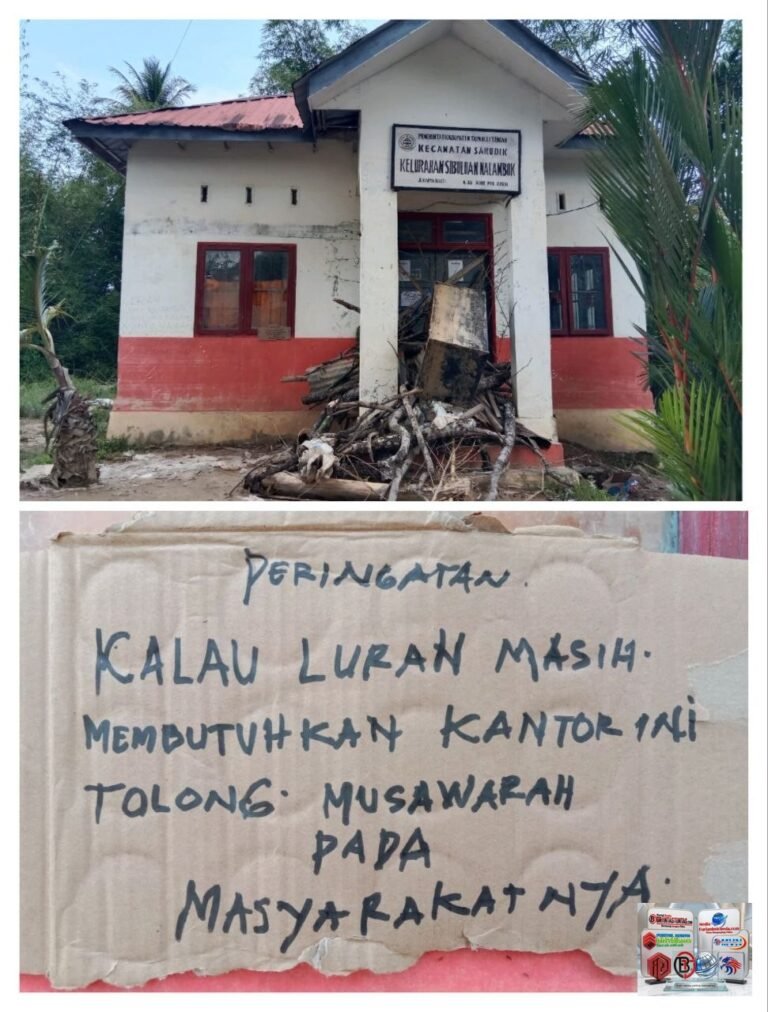 PEMERINTAH KABUPATEN TAPANULI TENGAH
KECAMATAN SARUDIK
KELURAHAN SIBULUAN NALAMBOK
PERINGATAN.
KALAU LURAH MASIH.
MEMBUTUHKAN KANTOR INI
TOLONG. MUSAWARAH
PADA
MASYARAKATNYA.